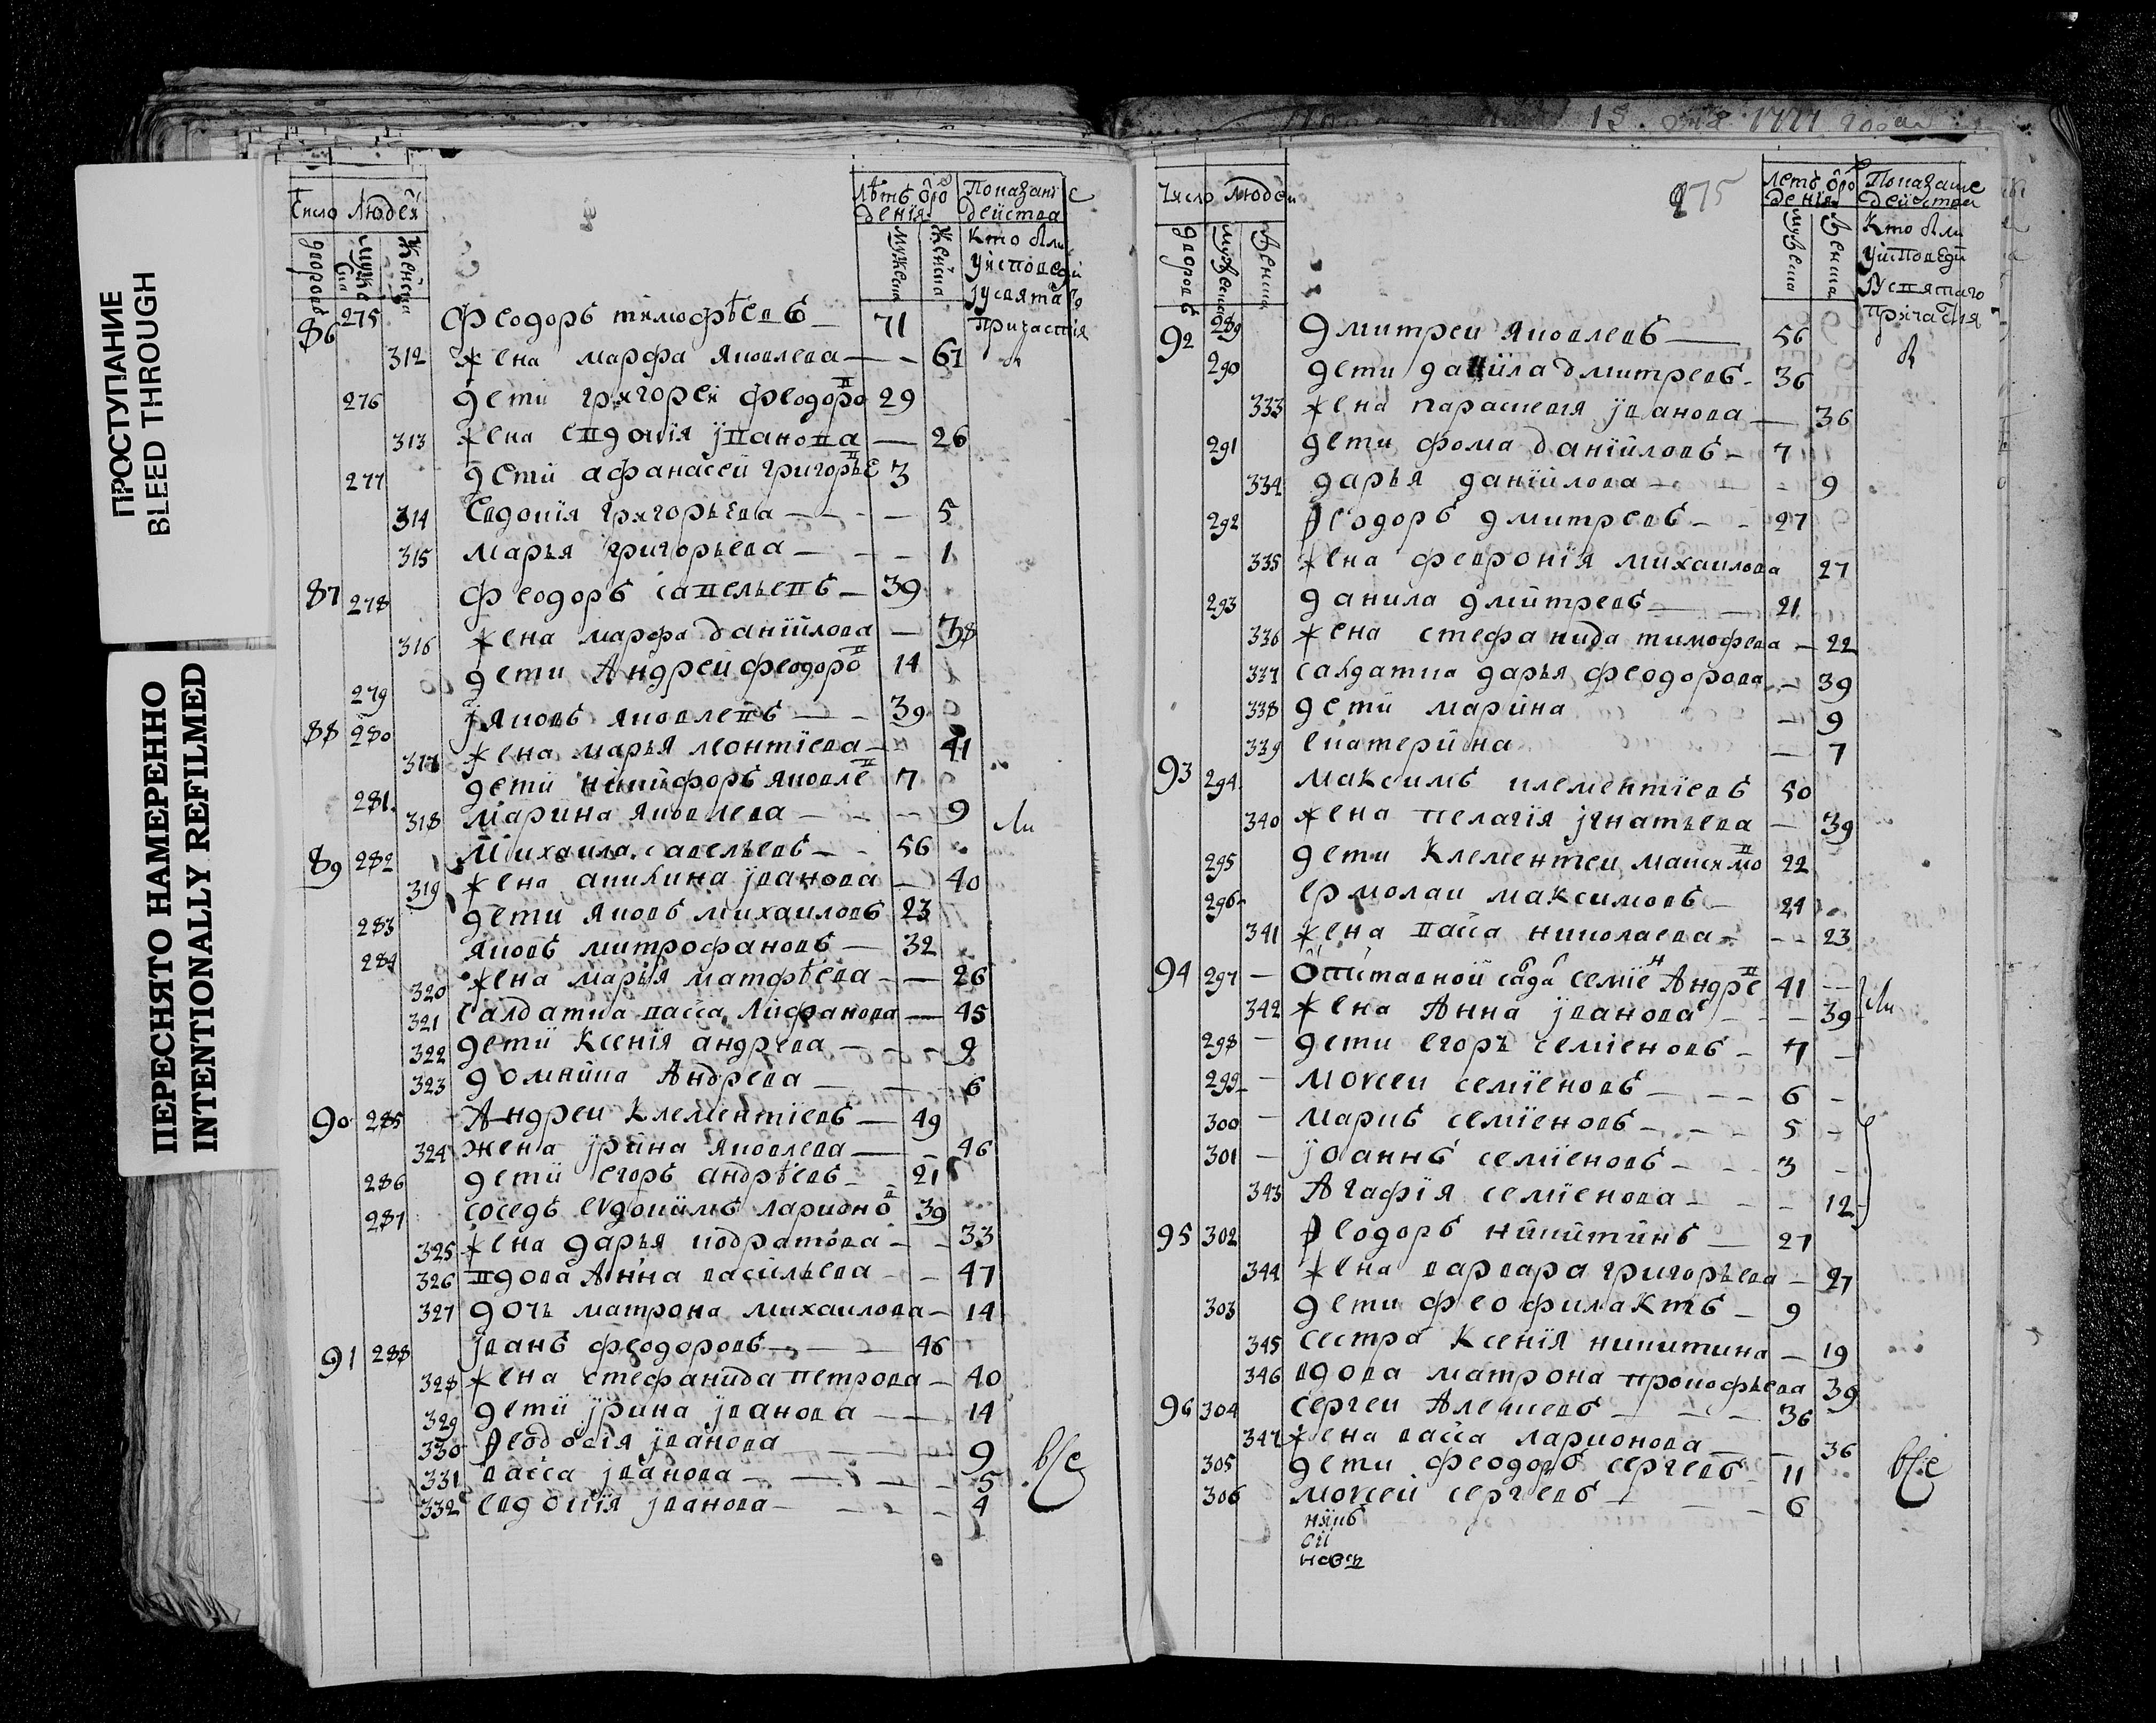 ПРОСТУПАНИЕ
BLEED THROUGH
ПЕРЕСНЯТО НАМЕРЕННО
INTENTIONALLY REFILMED
Число людей
лѣтъ ѿро денїя
Показанї е действа
дворовъ
мужеска
женска
мужеска
женска
Кто были
у исповеди
и у святаго
причастїя
86 275 Феодоръ тимофѣевъ — 71
312 жена марфа яковлева — 67
276 дети григореи феодоро в 29
313 жена евдокїя ивано ва — 26
277 дети афанасеи григорье в 3
314 Евдокїя григорьева — 5
315 марья григорьева — 1
87 278 Феодоръ савельевъ — 39
316 жена марфа данїилова — 38
279 дети Андреи феодоро в 14
88 280 яковъ яковлевъ — 39
317 жена марья леонтїева — 41
281 дети никифоръ яковле в 7
318 марина яковлева — 9
ли
89 282 Михаила савельевъ — 56
319 жена акилина иванова — 40
283 дети яковъ михаиловъ 23
284 яковъ митрофановъ — 32
320 жена марья матфѣева — 26
321 салдатка васса лифанова — 45
322 дети Ксенїя андрева — 9
323 домника Андрева — 6
90 285 Андреи Клементїевъ — 49
324 жена ирина яковлева — 46
286 дети егоръ андрѣевъ — 21
287 соседъ евдокимъ ларионо в 39
325 жена дарья кодратова — 33
326 вдова Анна васильева — 47
327 дочь матрона михаилова — 14
91 288 иванъ феодоровъ — 46
328 жена стефанида петрова — 40
329 дети ирина иванова — 14
330 Феодосїя иванова — 9
331 васса иванова — 5
332 евдокїя иванова — 4
все
13 1777 года
275
Число людеи
летъ ѿро денїя
Показание действа
дворовъ
мужеска
женска
мужеска
женска
Кто были
у исповеди
и у святаго
причастия
92 289 дмитреи яковлевъ — 56
290 дети данїила дмитревъ — 36
333 жена параскевия иванова — 36
291 дети фома данїиловъ — 7
334 дарья данїилова — 9
292 Феодоръ дмитревъ — 27
335 жена феврониїя михаилова 27
293 данила дмитревъ — 21
336 жена стефанида тимофева — 22
337 салдатка дарья феодорова — 39
338 дети марина — 9
339 екатерина — 7
93 294 максимъ клементїевъ 50
340 жена пелагїя игнатьева — 39
295 дети Клементеи максимо в 22
296 ермолаи максимовъ — 21
341 жена васса николаева — 23
94 297 — ѿставной салда семїе н Андре в 41
342 жена Анна иванова — 39
ли
298 — дети егоръ семїеновъ — 7
299 — моисеи семїеновъ — 6
300 — маркъ семїеновъ — 5
301 — иоаннъ семїеновъ — 3
343 Агафїя семїенова — 12
95 302 Феодоръ никитинъ — 27
344 жена варвара григорьева — 27
303 дети феофилактъ — 9
345 сестра Ксенїя никитина — 19
346 вдова матрона прокофьева 39
96 304 сергеи Алексевъ — 36
347 жена васса ларионова — 36
305 дети феодоръ сергевъ — 11
306 моисеи сергевъ — 6
все